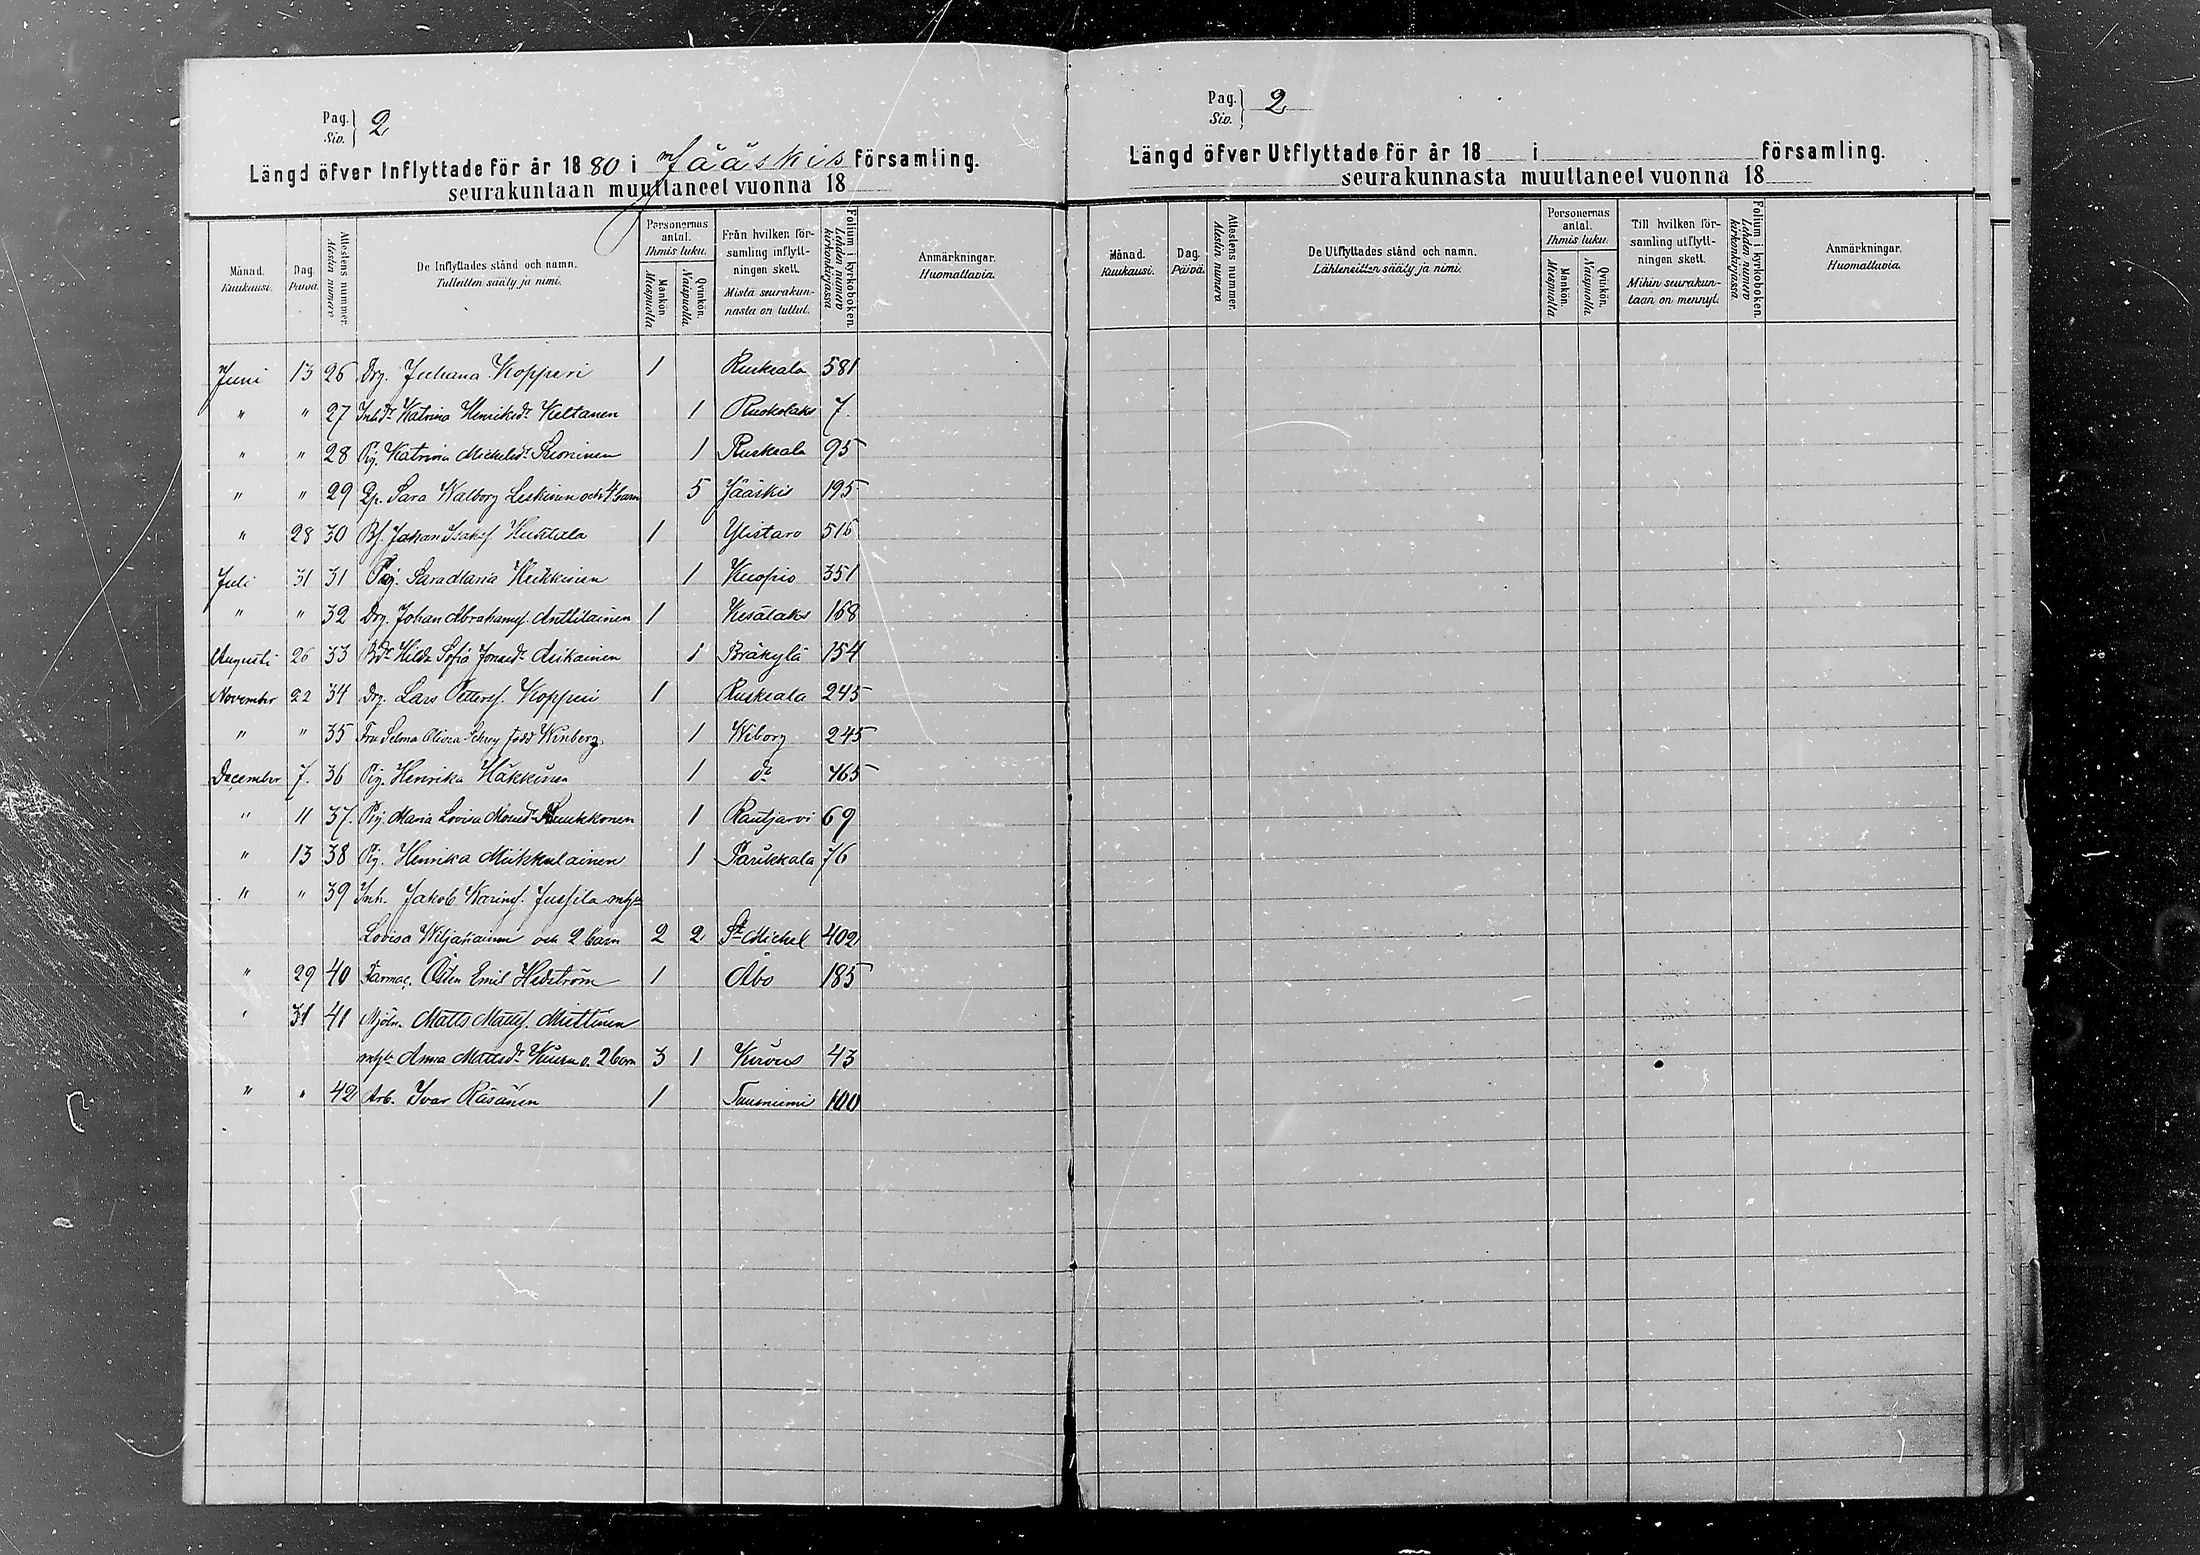 Pag. Siv. 2
Längd öfver Inflyttade för år 1880 i Jääskis församling.
seurakuntaan muuttaneet vuonna 18
Månad. Kuukausi. Dag. Päivä. Attestens nummer Atestin numero De Inflyttades stånd och namn. Tulleitten sääty ja nimi. Personernas antal. Ihmis luku. Mankön Miespuolia Qvinkön. Naispuolia. Från hvilken församling inflyttningen skett. Mistä seurakunnasta on tullut. Folium i kyrkoboken. Lehden numero kirkonkirjassa Anmärkningar. Huomattavia.
Juni 13 26 Drg. Juhana Kopperi 1 Ruskeala 581
" " 27 Inh.dr Katrina Henriksdr Keltanen 1 Ruokolaks 7.
" " 28 Pig. Katrina Michelsdr 1 Ruskeala 95
" " 29 Sara Walborg Leskinen och 4 barn 5 Jääskis 195
" 28 30 Bf. Johan Isaksf 1 Ylistaro 516
Juli 31 31 Pig. Sara Maria Heikkinen 1 Kuopio 351
" " 32 Drg. Johan Abrahamsf. Anttilainen 1 Kesälaks 168
Augusti 26 33 Bdr Hilda Sofia Jonasdr Asikainen 1 Bräkylä 154
November 22 34 Drg. Lars Pettersf. Kopperi 1 Ruskeala 245
" " 35 Fru Selma Olivia född Winberg 1 Wiborg 245
December 7. 36 Pig. Henrika Häkkinen 1 do 465
" 11 37. Pig. Maria Lovisa 1 Rautjärvi 69
" 13 38 Pig. Henrika Miikkulainen 1 Parikkala 76
" " 39 Inh. Jakob Karinsf. Jussila m hu
Lovisa Wiljanainen och 2 barn 2 2 St Michel 402
" 29 40 Farmac. Östen Emil Hedström 1 Åbo 185
" 31 41 Mjöln. Matts Mattsf. Miettinen
m hu Anna Mattsdr o. 2 barn 3 1 Kirvus 43
" " 42 Arb. Ivar Räsänen 1 Tuusniemi 100
Pag. Siv. 2
Längd öfver Utflyttade för år 18 i församling.
seurakunnasta muuttaneet vuonna 18
Månad. Kuukausi. Dag. Päivä. Attestens nummer. Atestin numero De Utflyttades stånd och namn. Lähteneitten sääty ja nimi. Personernas antal. Ihmis luku. Mankön. Miespuolia Qvinkön. Naispuolia Till hvilken församling utflyttningen skett. Mihin seurakuntaan on mennyt. Folium i kyrkoboken. Lehden numero kirkonkirjassa Anmärkningar. Huomattavia.